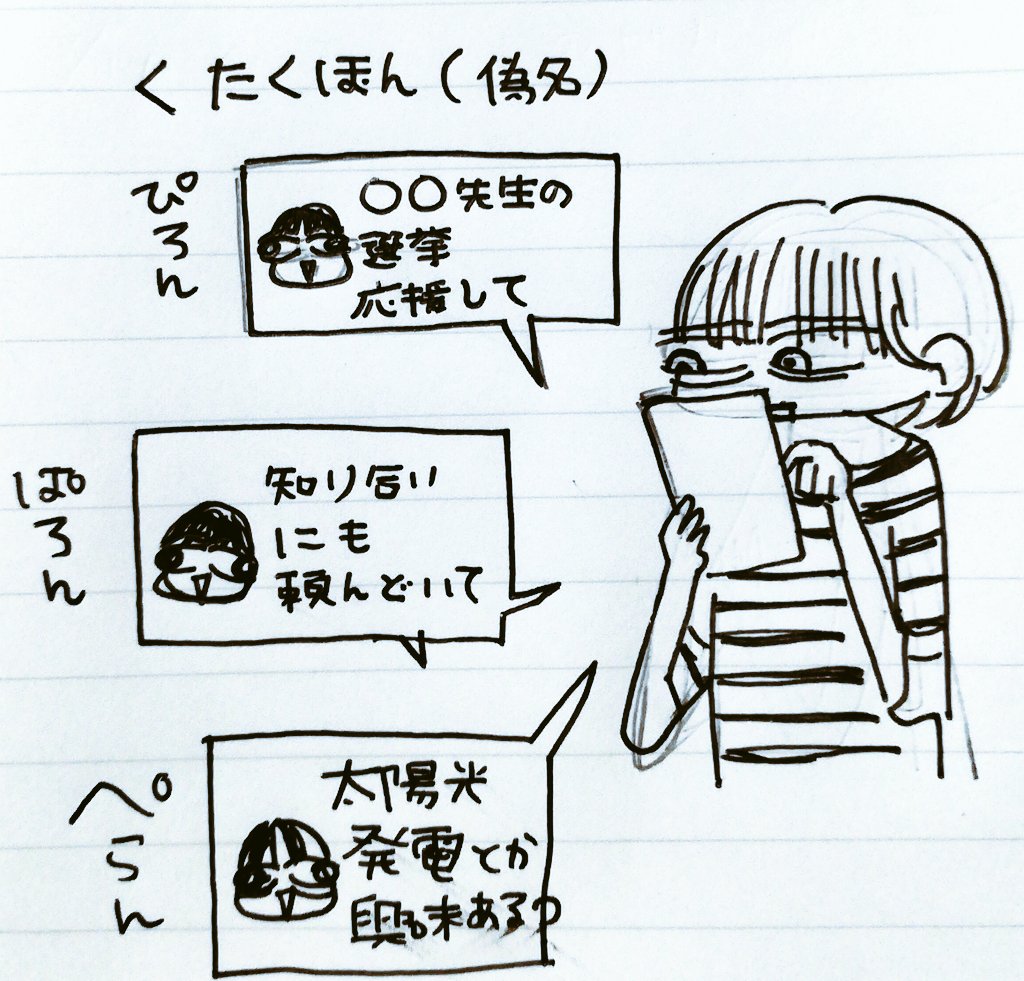 くたくほん(偽名)
ぴろん
〇〇先生の
選挙
応援して
ぱろん
知り合い
にも
頼んどいて
ぺらん
太陽光
発電とか
興味ある?